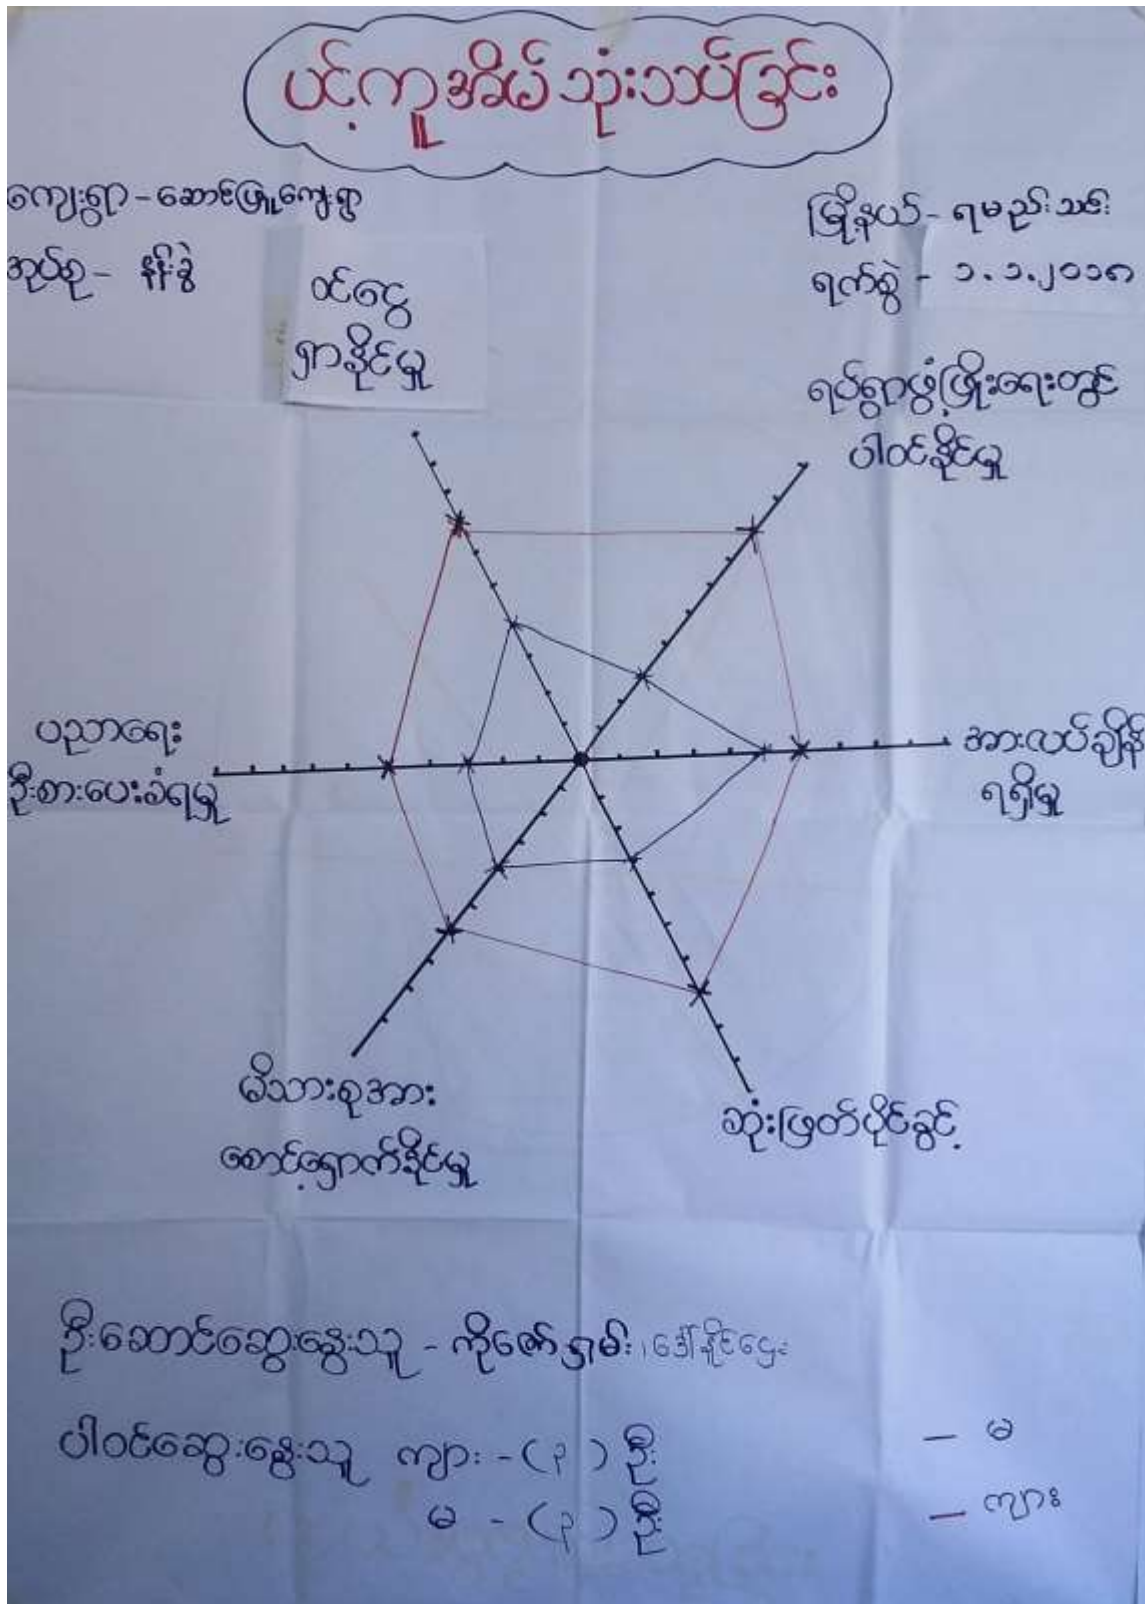 ပင့်ကူအိမ် သုံးသပ်ခြင်း
ကျေးရွာ - ဆောင်ဖြူကျေးရွာ
မြို့နယ် - ရမည်းသင်း
အုပ်စု - နန်းခွဲ
ရက်စွဲ - ၁.၁.၂၀၁၈
ဝင်ငွေ
ရှာနိုင်မှု
ရပ်ရွာဖွံ့ဖြိုးရေးတွင်
ပါဝင်နိုင်မှု
ပညာရေး
ဦးစားပေးခံရမှု
အားလပ်ချိန်
ရရှိမှု
မိသားစုအား
စောင့်ရှောက်နိုင်မှု
ဆုံးဖြတ်ပိုင်ခွင့်
ဦးဆောင်ဆွေးနွေးသူ - ကိုဇော်ရှမ်း၊ ဒေါ်နိုင်ဌေး
ပါဝင်ဆွေးနွေးသူ ကျား - (၃) ဦး
မ - (၃) ဦး
— မ
— ကျား